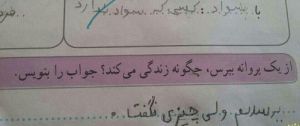 با بیسواد : کسی که سواد ندارد
از یک پروانه بپرس، چگونه زندگی می‌کند؟ جواب را بنویس.
پرسیدم ولی چیزی نگفت!